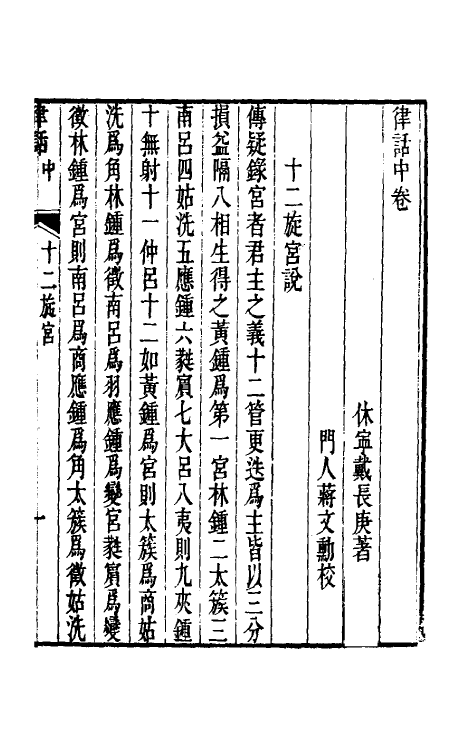 律話中卷
休寧戴長庚著
門人蔣文勳校
十二旋宮說
傳疑錄宮者君主之義十二管更迭爲主皆以三分
損益隔八相生得之黃鍾爲第一宮林鍾二太簇三
南呂四姑洗五應鍾六蕤賓七大呂八夷則九夾鍾
十無射十一仲呂十二如黃鍾爲宮則太簇爲商姑
洗爲角林鍾爲徵南呂爲羽應鍾爲變宮蕤賓爲變
徵林鍾爲宮則南呂爲商應鍾爲角太簇爲徵姑洗
律話 中 十二旋宮 一